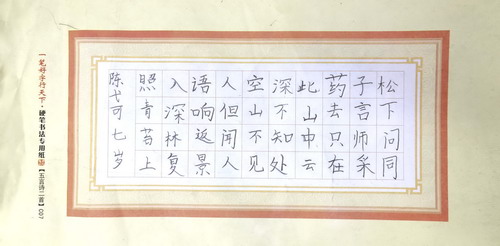 松下问同
子言师采
药去只在
此山中云
深不知处
空山不见
人但闻人
语响返景
入深林复
照青苔上
陈弋可七岁
一笔好字行天下·硬笔书法专用纸【五言诗二首】007